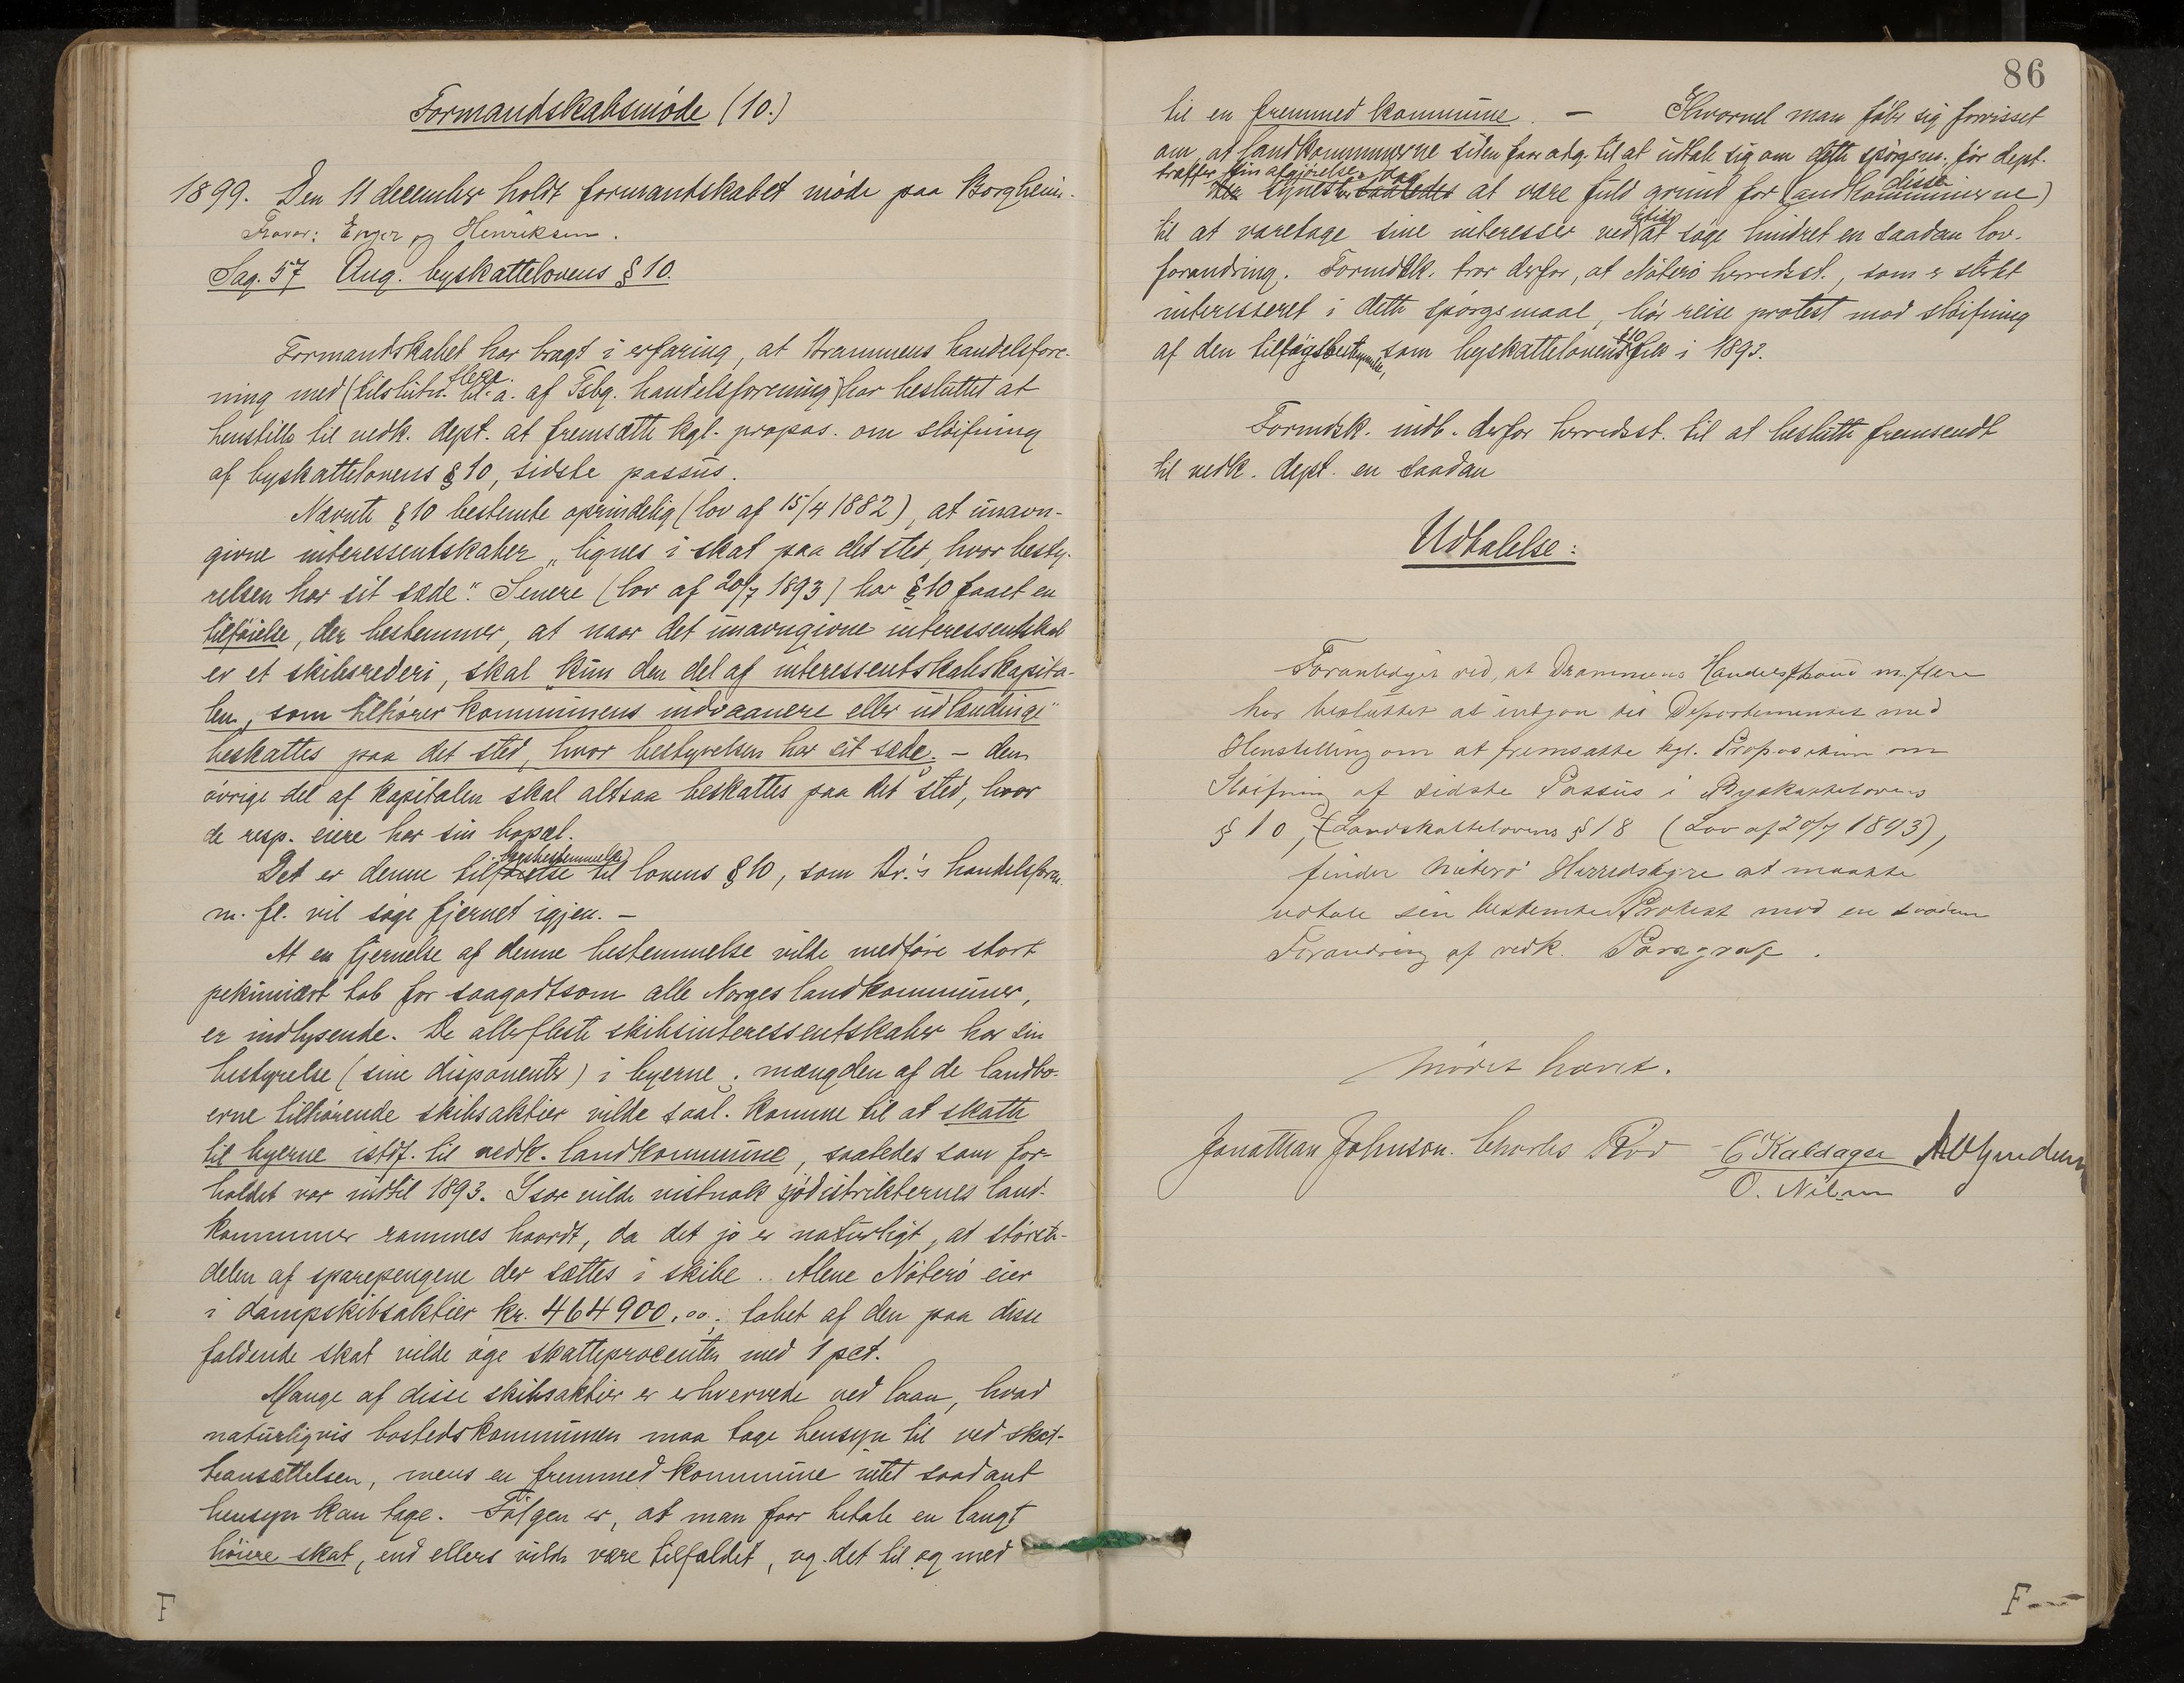 Formandskabsmöde (10.)
1899. Den 11 december holdt formandskabet möde paa Borgheim.
Fravær: Enger og Henriksen.
Sag. 57 Ang. byskattelovens § 10.
Formandskabet har bragt i erfaring, at Drammens handelsfore-
ning med (tilslutn. bl. a. flere af Tsbg. handelsforening) har besluttet at
henstille til vedk. dept. at fremsætte kgl. propos. om slöifning
af byskattelovens § 10, sidste passus.
Nævnte § 10 bestemte oprindelig (lov af 15/4 1882), at unavn-
givne interessentskaber „lignes i skat paa det sted, hvor besty-
relsen har sit sæde“. Senere (lov af 20/7 1893) har § 10 faaet en
tilföielse, der bestemmer, at naar det unavngivne interessentskab
er et skibsrederi, skal „kun den del af interessentskabskapita-
len, som tilhörer kommunens indvaanere eller udlændinge“
beskattes paa det sted, hvor bestyrelsen har sit sæde; – den
övrige del af kapitalen skal altsaa beskattes paa det sted, hvor
de resp. eiere har sin bopæl.
lægsbestemmelse
Det er denne tilföielse til lovens § 10, som Dr.'s handelsforen.
m. fl. vil söge fjernet igjen. –
At en fjernelse af denne bestemmelse vilde medföre stort
pekuniært tab for saagodtsom alle Norges landkommuner,
er indlysende. De allerfleste skibsinteressentskaber har sin
bestyrelse (sine disponenter) i byerne; mængden af de landbo-
erne tilhörende skibsaktier vilde saal. komme til at skatte
til byerne istdf. til vedk. landkommune, saaledes som for-
holdet var indtil 1893. Især vilde vistnok sjödistrikternes land-
kommuner rammes haardt, da det jo er naturligt, at störste-
delen af sparepengene der sættes i skibe. Alene Nöterö eier
i dampskibsaktier kr. 464900.00; tabet af den paa disse
faldende skat vilde öge skatteprocenten med 1 pct.
Mange af disse skibsaktier er erhvervede ved laan, hvad
naturligvis bostedskommunen maa tage hensyn til ved skat-
teansættelsen, mens en fremmed kommune intet saadant
hensyn kan tage. Fölgen er, at man faar betale en langt
höiere skat, end ellers vilde være tilfældet, og det til og med
F
86
til en fremmed kommune. – Hvorvel man föler sig forvisset
om, at landkommunerne siden faar adg. til at udtale sig om dette spörgsm. för dept.
træffer sin afgjörelse, dog
synes der saaledes at være fuld grund for landkommunerne) disse
til at varetage sine interesser ved itide at söge hindret en saadan lov-
forandring. Formdsk. tror derfor, at Nöterö herredsst., som er stærkt
interesseret i dette spörgsmaal, bör reise protest mod slöifning
af den tillægsbestemmelse, som byskattelovens § 10 fik i 1893.
Formdsk. indb. derfor herredsst. til at beslutte fremsendt
til vedk. dept. en saadan
Udtalelse:
Foranlediget ved, at Drammens Handelsstand m. flere
har besluttet at indgaa til Departementet med
Henstilling om at fremsætte kgl. Proposition om
Slöifning af sidste Passus i Byskattelovens
§ 10, (Landskattelovens § 18 (Lov af 20/7 1893),
finder Nöterö Herredstyre at maatte
udtale sin bestemte Protest mod en saadan
Forandring af vedk. Paragraf.
Mödet hævet.
Jonathan Johnson. Charles Röd C Kaldager
O. Nilsen
F